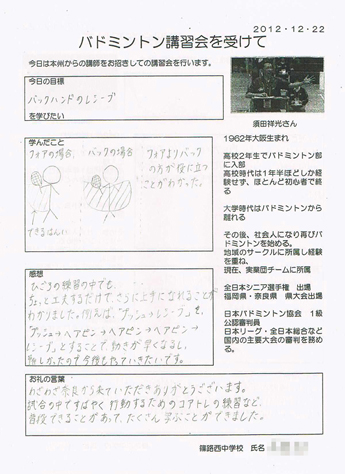 2012・12・22
バドミントン講習会を受けて
今日は本州からの講師をお招きしての講習会を行います。
今日の目標
バックハンドのレシーブ
を学びたい
学んだこと
フォアの場合
バックの場合
フォアよりバック
の方が役に立つ
ことがわかった。
できるはんい
感想
ひごろの練習の中でも、
ちょっと工夫するだけで、さらに上手になれることが
わかりました。例えば、「プッシュ→レシーブ」を、
「プッシュ→ヘアピン→ヘアピン→ヘアピン→
レシーブ」とすることで、動きが早くなるし、
楽しかったので今後もやっていきたいです。
お礼の言葉
わざわざ奈良から来ていただきありがとうございます。
試合の中ですばやく行動するためのコアトレの練習など、
普段できることがあって、たくさん学ぶことができました。
須田祥光さん
1962年大阪生まれ
高校2年生でバドミントン部
に入部
高校時代は1年半ほどしか経
験せず、ほとんど初心者で終
る
大学時代はバドミントンから
離れる
その後、社会人になり再びバ
ドミントンを始める。
地域のサークルに所属し経験
を重ね、
現在、実業団チームに所属
全日本シニア選手権 出場
福岡県・奈良県 県大会出場
日本バドミントン協会 1級
公認審判員
日本リーグ・全日本総合など
国内の主要大会の審判を務め
る。
篠路西中学校 氏名